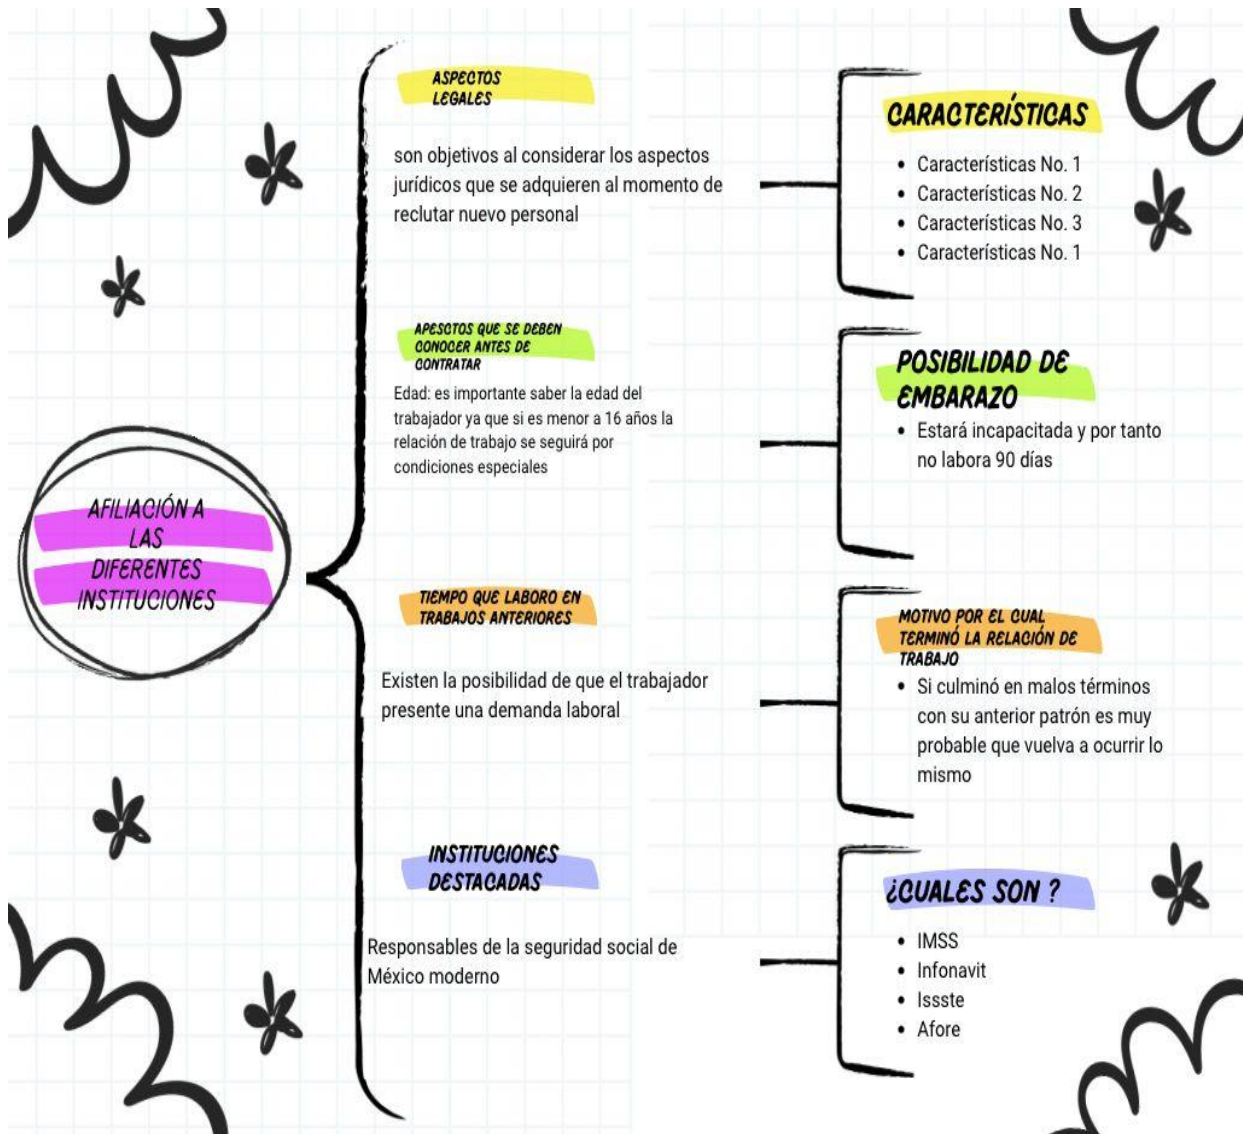 AFILIACIÓN A
LAS
DIFERENTES
INSTITUCIONES
ASPECTOS
LEGALES
son objetivos al considerar los aspectos
jurídicos que se adquieren al momento de
reclutar nuevo personal
CARACTERÍSTICAS
• Características No. 1
• Características No. 2
• Características No. 3
• Características No. 1
APESCTOS QUE SE DEBEN
CONOCER ANTES DE
CONTRATAR
Edad: es importante saber la edad del
trabajador ya que si es menor a 16 años la
relación de trabajo se seguirá por
condiciones especiales
POSIBILIDAD DE
EMBARAZO
• Estará incapacitada y por tanto
no labora 90 días
TIEMPO QUE LABORO EN
TRABAJOS ANTERIORES
Existen la posibilidad de que el trabajador
presente una demanda laboral
MOTIVO POR EL CUAL
TERMINÓ LA RELACIÓN DE
TRABAJO
• Si culminó en malos términos
con su anterior patrón es muy
probable que vuelva a ocurrir lo
mismo
INSTITUCIONES
DESTACADAS
Responsables de la seguridad social de
México moderno
¿CUALES SON ?
• IMSS
• Infonavit
• Issste
• Afore